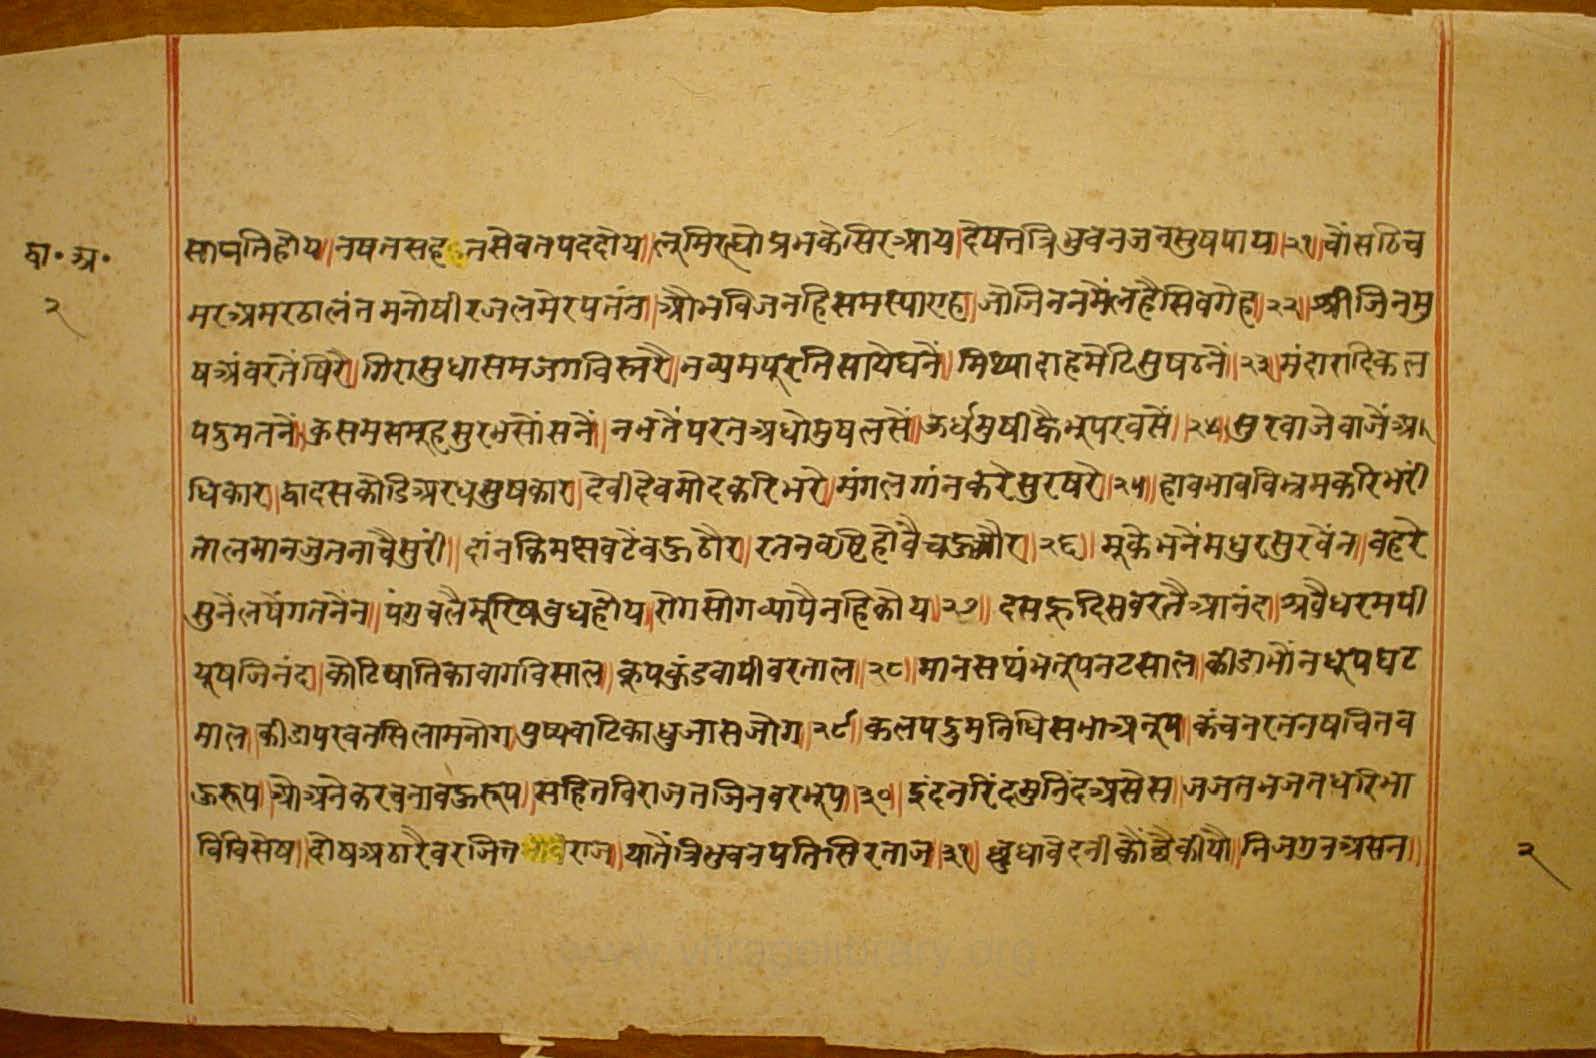 द्वा॰ अ॰
२
सापतिहोय॥ नषतसहसतसेवतपददोय॥ लूमिरह्यो भ्रमकेसिरआय॥ देषतत्रिभुवनजनसुषपाय॥२१॥ चौंसठिच
मरअमरढालंत मनोषीरजलमेरपतंत॥ औभविजनहिसमस्याएहा॥ जोजिननमैंलहैसिवगेह॥२२॥ श्रीजिनमु
षअंवरतेंषिरै॥ गिरासुधासमजगविस्तरै॥ नव्यमयूरनिसायेघनें॥ मिथ्यादाहमेटिसुषठनें॥२३॥ मंदारादिकल
पद्रुमतनें॥ क्रसमसमूहसुरभसौंसनें॥ नभतेंपरतअधोमुषलसें॥ ऊर्धमुषीह्वैभूपरवसें॥२४॥ सुरवाजेवाजेंअ
धिकार॥ द्वादसकोडिअरधसुषकार॥ देवीदेवमोदकरिभरे॥ मंगलगांनकरेसुरषरे॥२५॥ हावभावविभ्रमकरिभरी
तालमानजुतनाचैसुरी॥ दांनकिमसवटेंवऊठौर॥ रतनव्यष्टिहोवैचऊऔर॥२६॥ मूकेभनेंमधुरसुरवेंन॥ वहरे
सुनेंलषेंगतनेंन॥ पंगुचलैमूरिषवुधहोय॥ रोगसोगव्यापैनहिकोय॥२७॥ दसहूदिसवरतैआनंद॥ श्रवैधरमपी
यूषजिनंद॥ कोटिषातिकावागविसाल॥ कूपकुंडवापीवरताल॥२८॥ मानसथंभतूपनटसाल॥ क्रीडाभौंनधूपघट
माल॥ क्रीडापरवतसिलामनोग॥ पुष्पवाटिकाधुजासजोग॥२९॥ कलपद्रुमनिधिसभाअनूप॥ कंचनरतनषचितव
ऊरूप॥ औअनेकरचनावऊरूप॥ सहितविराजतजिनवरभूप॥३०॥ इंदनरिंदमुनिंदअसेस॥ जजतभजतधरिभा
वविसेष॥ दोषअठारैवरजितराज॥ यातैंत्रिभुवनपतिसिरताज॥३१॥ क्षुधावेदनीकौंछैकीयौ॥ निजगुनअसन॥
२
www.vitragelibrary.org